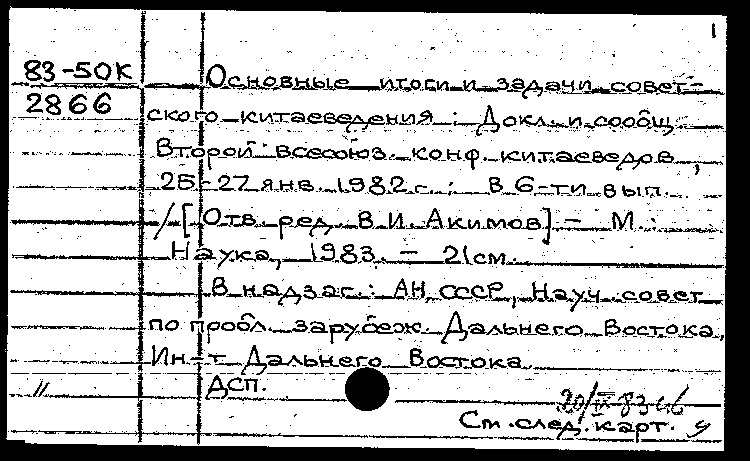 1
83-50К
2866
Основные итоги и задачи совет-
ского китаеведения : Докл. и сообщ.
Второй всесоюз. конф. китаеведов,
25-27 янв. 1982 г. : В 6-ти вып.
/ [Отв. ред. В.И. Акимов]. - М. :
Наука, 1983. - 21 см.
В надзаг.: АН СССР, Науч. совет
по пробл. зарубеж. Дальнего Востока,
Ин-т Дальнего Востока
ДСП.
"
20/IX-83
См. след. карт.